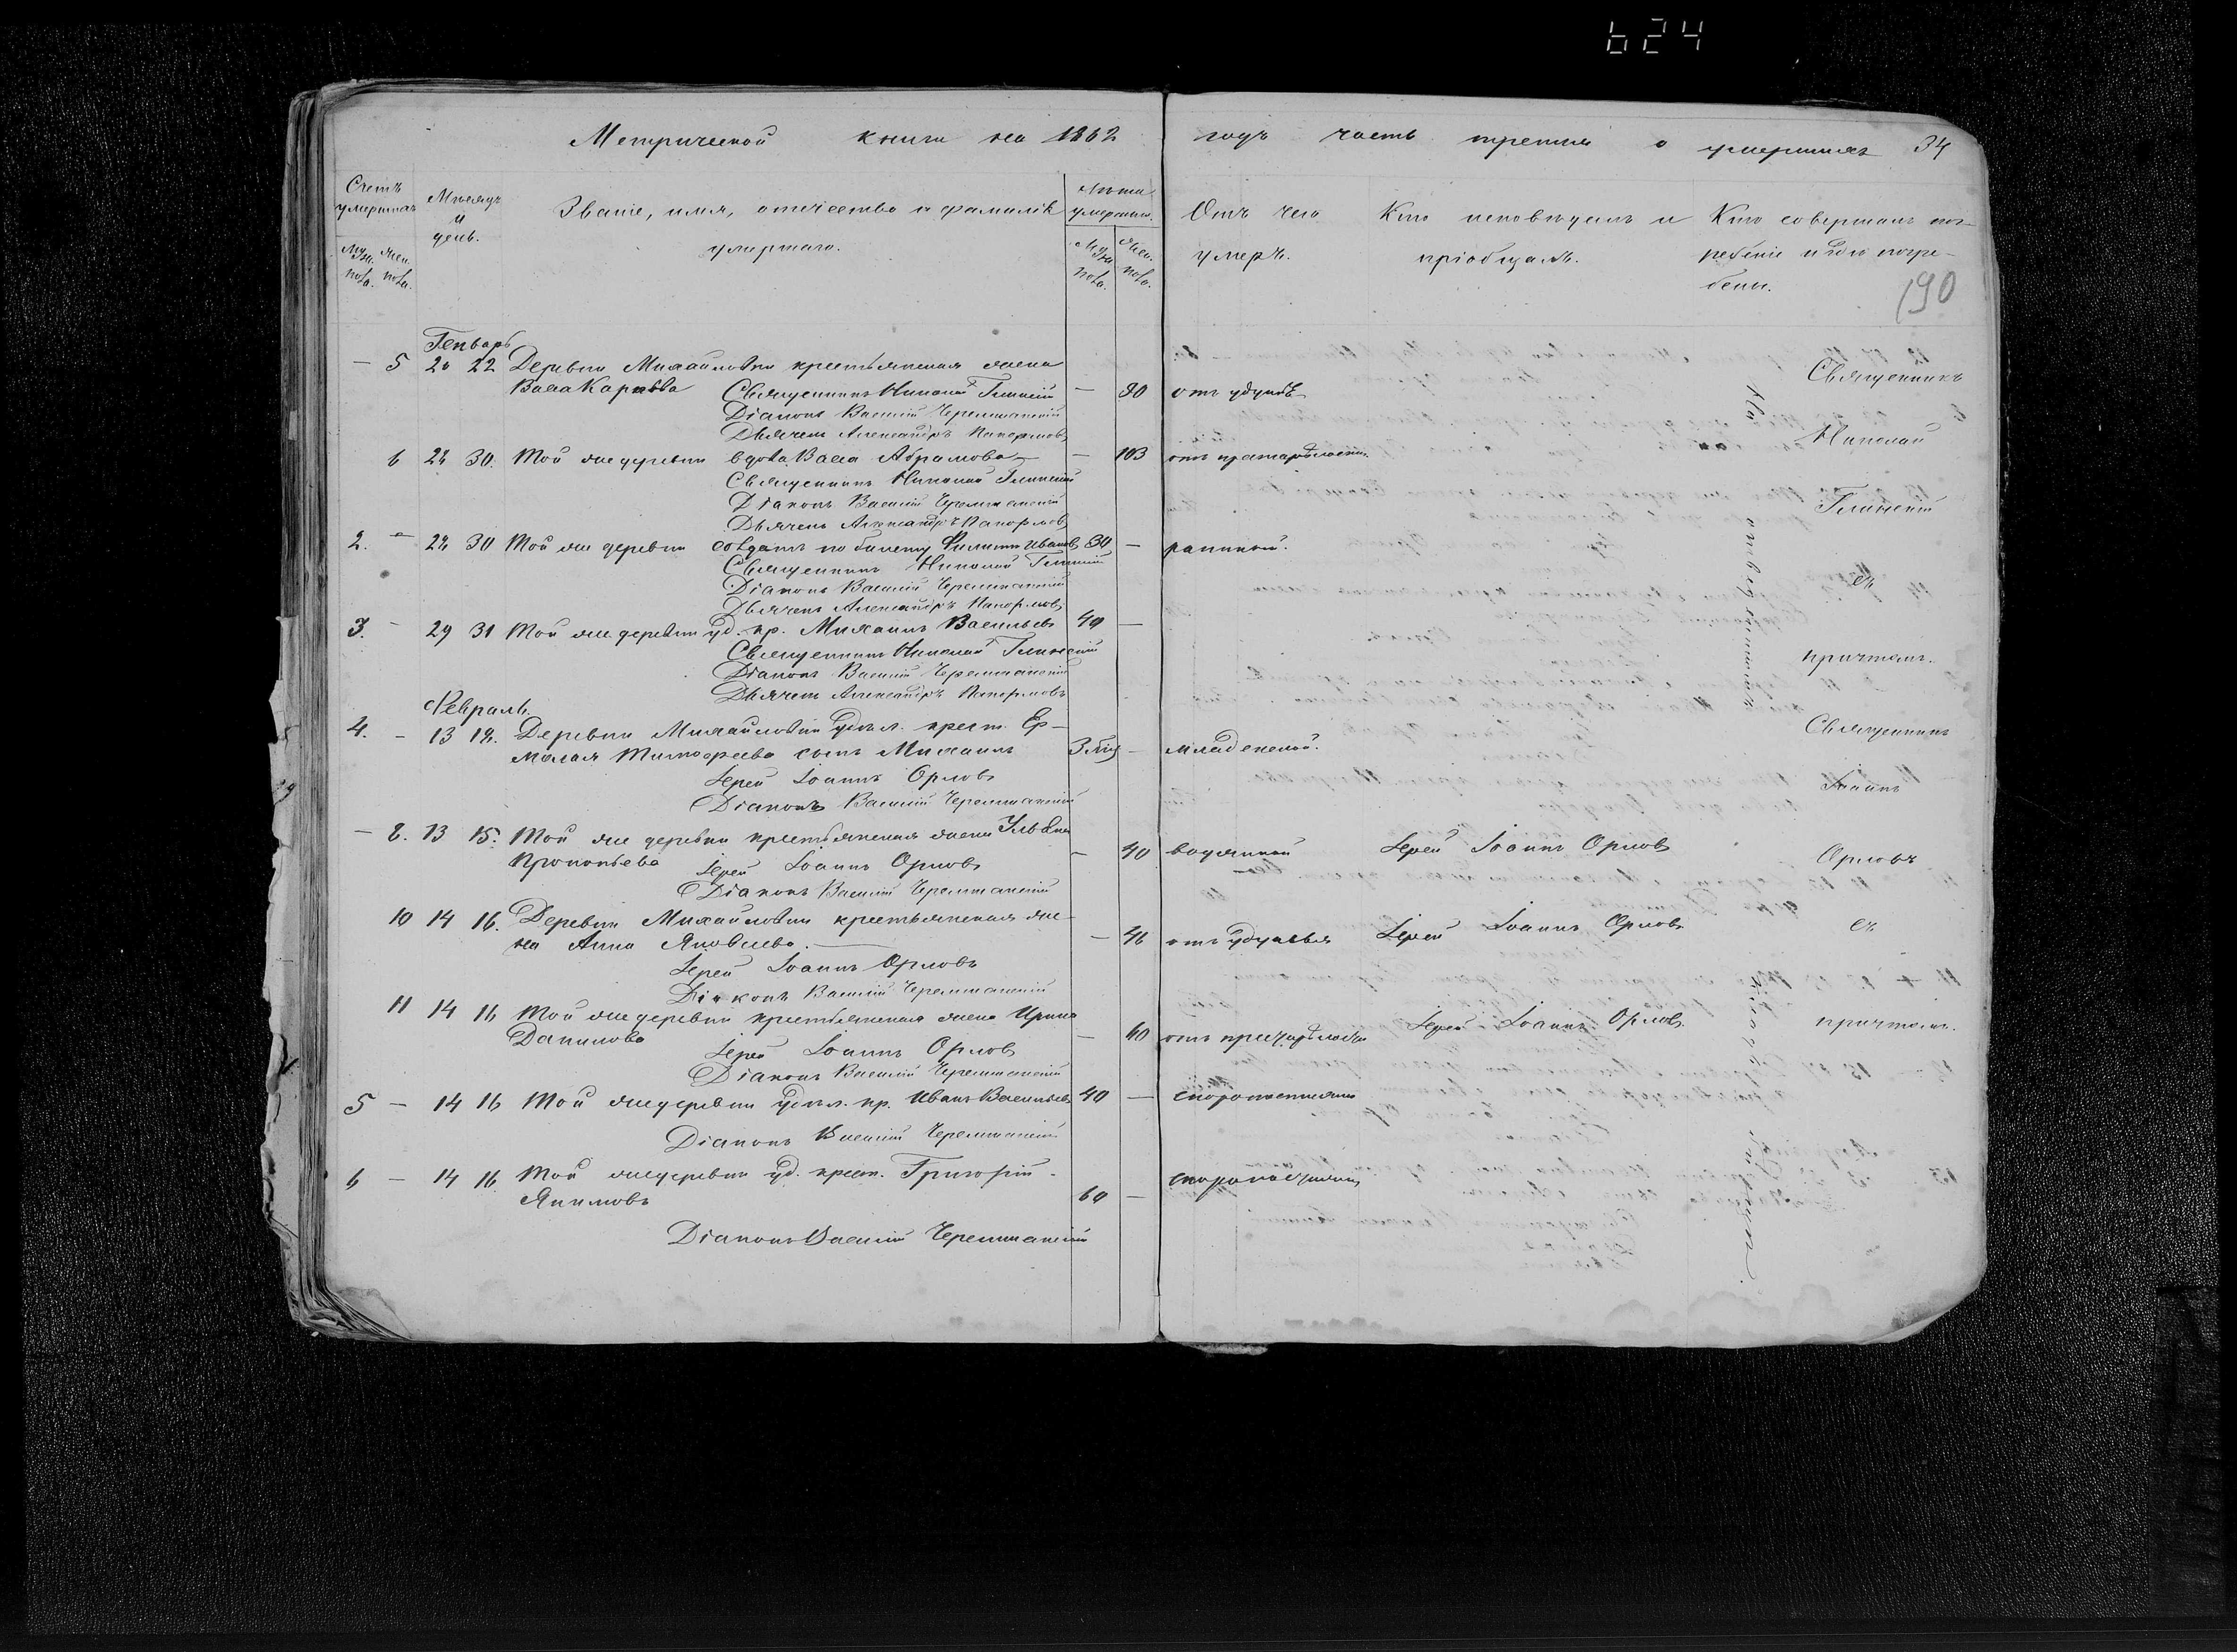 624
Метрической книги на 1862 годъ часть третія о умершихъ 34
Счетъ умершихъ
Мѣсяцъ и день.
Званіе, имя, отчество и фамилія умершаго.
Лѣта умершаго.
Отъ чего умеръ.
Кто исповѣдалъ и пріобщалъ.
Кто совершалъ погребеніе и гдѣ погребены.
Муж. пола. Жен. пола.
Муж. пола. Жен. пола.
190
Генварь
— 5 20 22 Деревни Михайловки крестьянская жена
Васса Карпова — 80 отъ удушья
Священникъ Николай Глинскій
Діаконъ Василій Черемшанскій
Дьячекъ Александръ
6 28 30. Той же деревни вдова Васса Абрамова — 103 отъ престарѣлости
Священникъ Николай Глинскій
Діаконъ Василій Черемшанскій
Дьячекъ Александръ
2. — 28 30 Той же деревни солдатъ по билету Филиппъ Ивановъ 30 —
Священникъ Николай Глинскій
Діаконъ Василій Черемшанскій
Дьячекъ Александръ
3. — 29 31 Той же деревни уд. кр. Михаилъ Васильевъ 40 —
Священникъ Николай Глинскій
Діаконъ Василій Черемшанскій
Дьячекъ Александръ
Февраль.
4. — 13 18. Деревни Михайловки удѣл. крест. Ер-
молая Тимофеева сынъ Михаилъ —
Іерей Іоаннъ Орловъ
Діаконъ Василій Черемшанскій
— 13 15. Той же деревни крестьянская жена
Прокопьева — 40 водянкой Іерей Іоаннъ Орловъ
Іерей Іоаннъ Орловъ
Діаконъ Василій Черемшанскій
10 14 16. Деревни Михайловки крестьянская же-
на Анна Яковлева. — отъ удушья Іерей Іоаннъ Орловъ
Іерей Іоаннъ Орловъ
Діаконъ Василій Черемшанскій
11 14 16 Той же деревни крестьянская жена Ирина
Данилова — 60 отъ престарѣлости Іерей Іоаннъ Орловъ
Іерей Іоаннъ Орловъ
Діаконъ Василій Черемшанскій
5 — 14 16 Той же деревни удѣл. кр. Иванъ Васильевъ 40 — скоропостижно
Діаконъ Василій Черемшанскій
6 — 14 16 Той же деревни уд. крест. Григорій
Якимовъ 60 — скоропостижно
Діаконъ Василій Черемшанскій
Священникъ
Николай
Глинскій
съ
причтомъ.
Священникъ
Іоаннъ
Орловъ
съ
причтомъ.
На